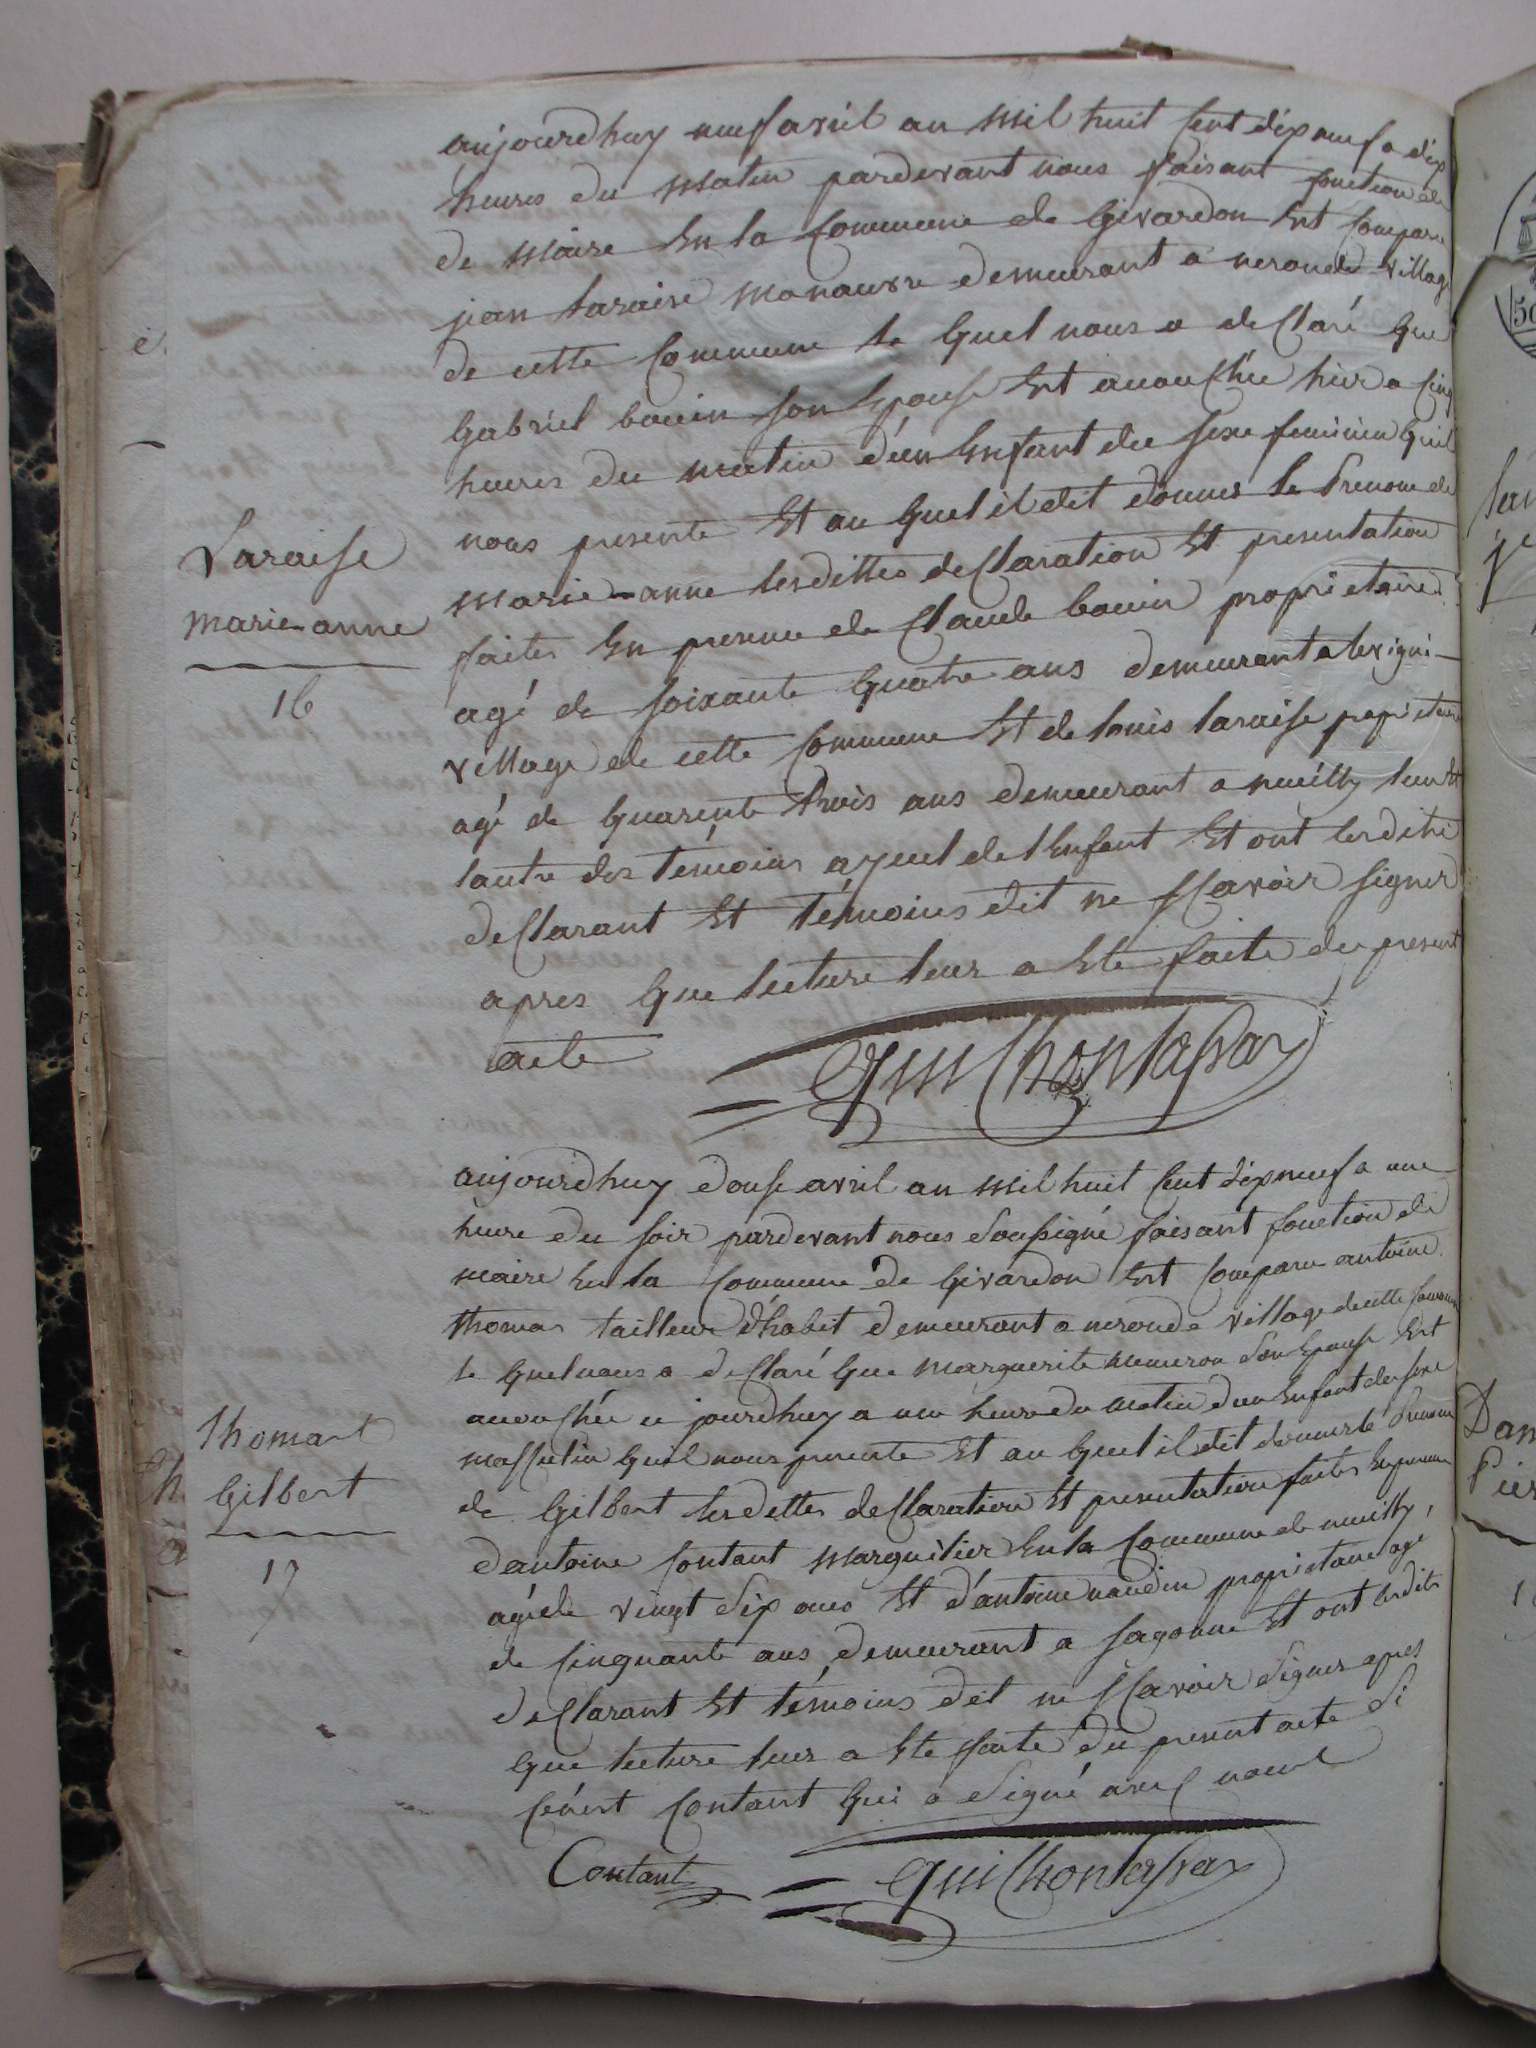 aujourdhuy neuf avril an mil huit Cent dix neuf a dix
heures du matin pardevant nous faisant fonction de
de maire En la Commune de Givardon Est Comparu
jean Laraise manauvre demeurant a neronde village
de cette Commune le quel nous a declaré que
Gabriel bouin son Epouse Est acouchée hier a cinq
heures du matin d'un Enfant du sexe feminin quil
nous presente Et au quel il dit donner le Prenom de
marie-anne lesdittes declaration Et presentation
faites En presence de Claude bouin proprietaire
agé de soixante quatre ans demeurant a levigni
village de cette Commune Et de louis laraise proprietaire
agé de quarente trois ans demeurant a neuilly lun Et
lautre des témoins ayeul de lEnfant Et ont lesdits
declarant Et témoins dit ne scavoir signer
apres que lecture leur a Eté faite du present
acte
Laraise
marie-anne
16
aujourdhuy douse avril an mil huit Cent dix neuf a une
heure du soir pardevant nous soussigné faisant fonction de
maire En la Commune de Givardon Est Comparu antoine
thomas tailleur d'habit demeurant a neronde village de cette Commune
le quel nous a declaré que marguerite son Epouse Est
acouchée ce jourdhuy a une heure du matin d'un Enfant du sexe
masculin quil nous presente Et au quel il dit donner le Prenom
de Gilbert lesdittes declaration Et presentation faites En presence
d'antoine Contant marguilier En la Commune de neuilly,
agé de vingt six ans Et d'antoine naudin proprietaire agé
de Cinquante ans demeurant a sagonne Et ont lesdits
declarant Et témoins dit ne scavoir signer apres
que lecture leur a Eté faite du present acte si
Cen'est Contant qui a signé avec nous
Contant
thomas
Gilbert
17